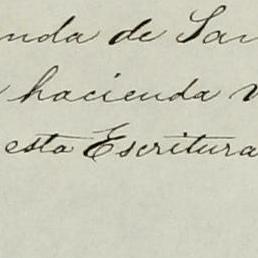 nda de San
hacienda
esta Escritura